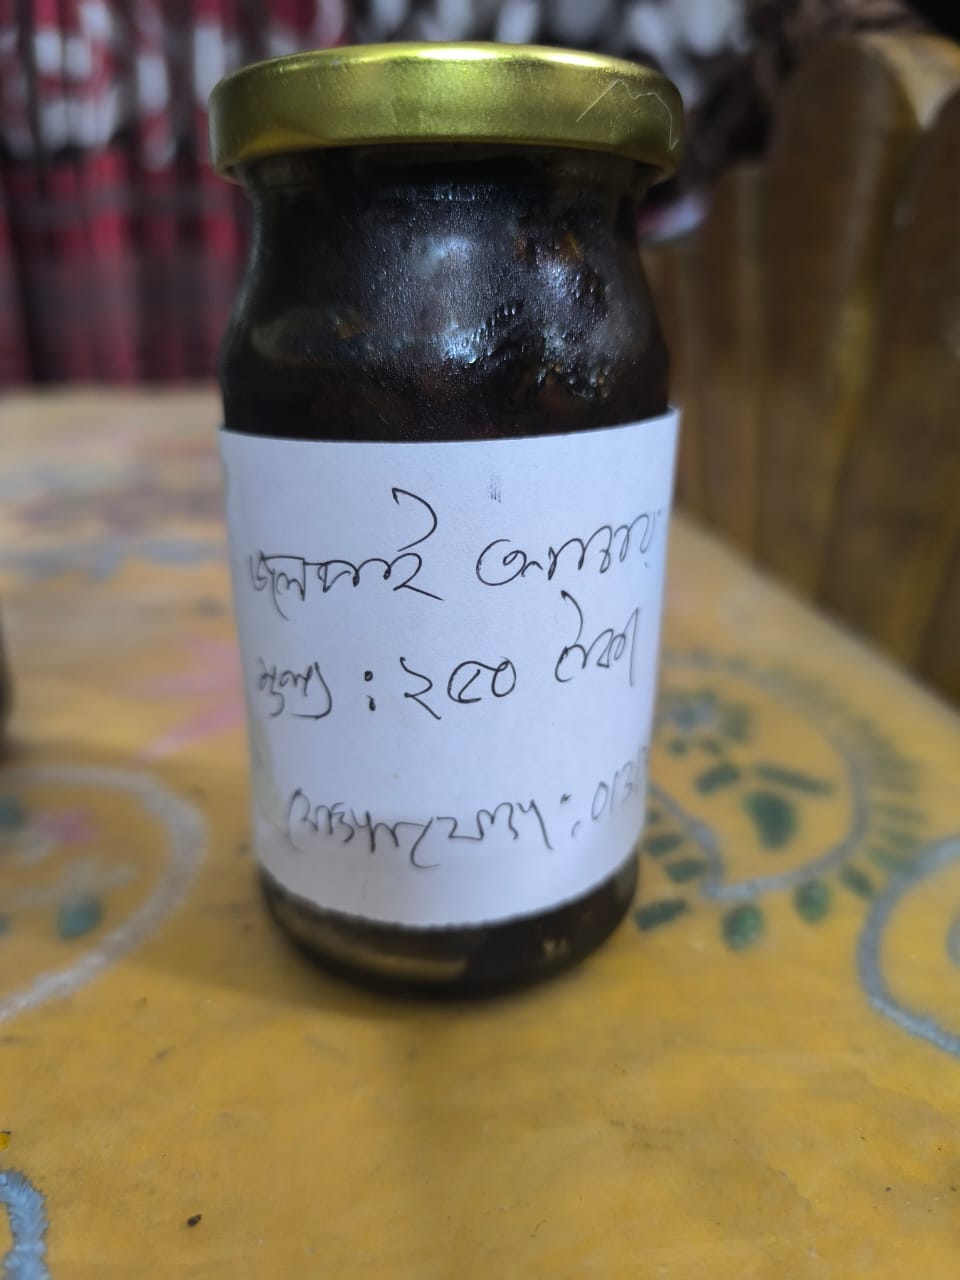 জলপাই আচার
মূল্য : ২৫০ টাকা
যোগাযোগ : 013